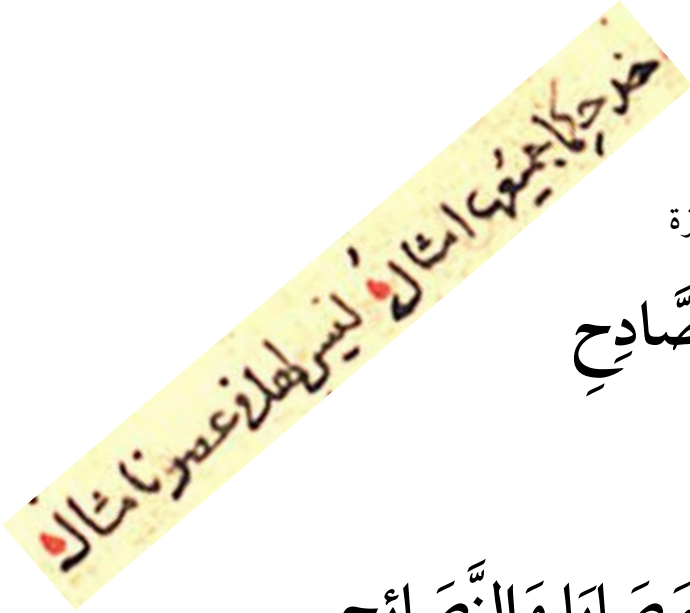 خذ حِكما جميعُها امثالُ ليس لها في عصرنا مثال
صَّادِحِ
وَالنَّصَائِحِ